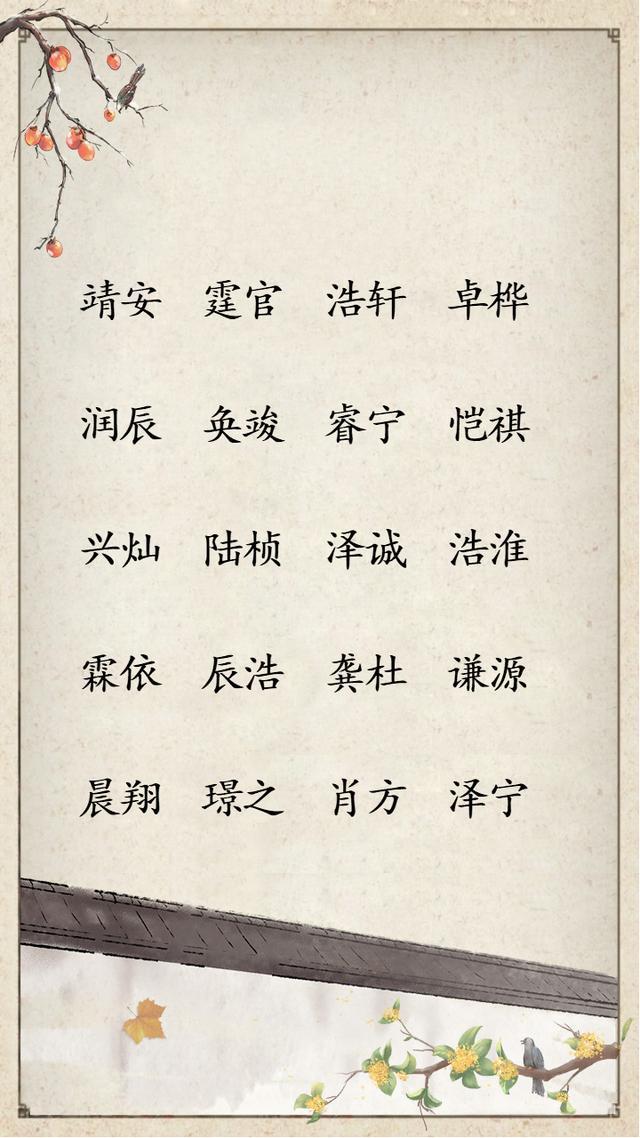 靖安 霆官 浩轩 卓桦
润辰 奂竣 睿宁 恺祺
兴灿 陆桢 泽诚 浩淮
霖依 辰浩 龚杜 谦源
晨翔 璟之 肖方 泽宁